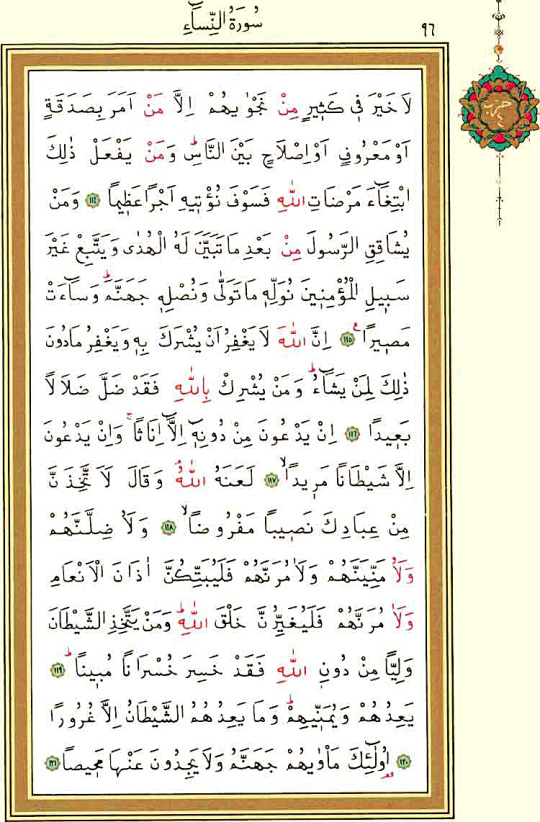 سُورَةُ النِّسَاءِ
٩٦
حزب
٤
لَا خَيْرَ فٖى كَثٖيرٍ مِنْ نَجْوٰيهُمْ اِلَّا مَنْ اَمَرَ بِصَدَقَةٍ
اَوْ مَعْرُوفٍ اَوْ اِصْلَاحٍ بَيْنَ النَّاسِؕ وَمَنْ يَفْعَلْ ذٰلِكَ
ابْتِغَٓاءَ مَرْضَاتِ اللّٰهِ فَسَوْفَ نُؤْتٖيهِ اَجْرًا عَظٖيمًا ﴿١١٤﴾ وَمَنْ
يُشَاقِقِ الرَّسُولَ مِنْ بَعْدِ مَا تَبَيَّنَ لَهُ الْهُدٰى وَيَتَّبِعْ غَيْرَ
سَبٖيلِ الْمُؤْمِنٖينَ نُوَلِّهٖ مَا تَوَلّٰى وَنُصْلِهٖ جَهَنَّمَؕ وَسَٓاءَتْ
مَصٖيرًاࣖ ﴿١١٥﴾ اِنَّ اللّٰهَ لَا يَغْفِرُ اَنْ يُشْرَكَ بِهٖ وَيَغْفِرُ مَا دُونَ
ذٰلِكَ لِمَنْ يَشَٓاءُؕ وَمَنْ يُشْرِكْ بِاللّٰهِ فَقَدْ ضَلَّ ضَلَالًا
بَعٖيدًا ﴿١١٦﴾ اِنْ يَدْعُونَ مِنْ دُونِهٖٓ اِلَّٓا اِنَاثًاۚ وَاِنْ يَدْعُونَ
اِلَّا شَيْطَانًا مَرٖيدًاۙ ﴿١١٧﴾ لَعَنَهُ اللّٰهُۘ وَقَالَ لَاَتَّخِذَنَّ
مِنْ عِبَادِكَ نَصٖيبًا مَفْرُوضًاۙ ﴿١١٨﴾ وَلَاُضِلَّنَّهُمْ
وَلَاُمَنِّيَنَّهُمْ وَلَاٰمُرَنَّهُمْ فَلَيُبَتِّكُنَّ اٰذَانَ الْاَنْعَامِ
وَلَاٰمُرَنَّهُمْ فَلَيُغَيِّرُنَّ خَلْقَ اللّٰهِؕ وَمَنْ يَتَّخِذِ الشَّيْطَانَ
وَلِيًّا مِنْ دُونِ اللّٰهِ فَقَدْ خَسِرَ خُسْرَانًا مُبٖينًاؕ ﴿١١٩﴾
يَعِدُهُمْ وَيُمَنّٖيهِمْؕ وَمَا يَعِدُهُمُ الشَّيْطَانُ اِلَّا غُرُورًا
﴿١٢٠﴾ اُو۬لٰٓئِكَ مَأْوٰيهُمْ جَهَنَّمُ وَلَا يَجِدُونَ عَنْهَا مَحٖيصًا ﴿١٢١﴾